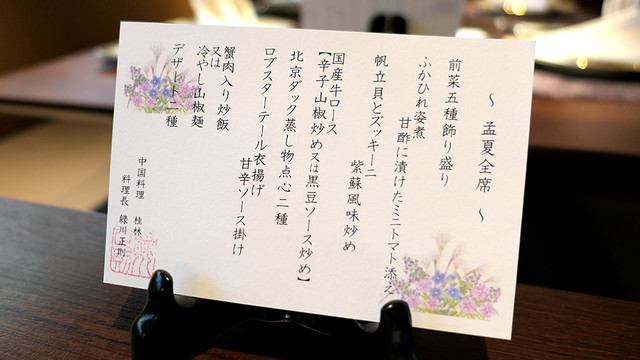 ～ 孟夏全席 ～
前菜五種飾り盛り
ふかひれ姿煮
甘酢に漬けたミニトマト添え
帆立貝とズッキーニ
紫蘇風味炒め
国産牛ロース
【辛子山椒炒め又は黒豆ソース炒め】
北京ダック蒸し物点心二種
ロブスターテール衣揚げ
甘辛ソース掛け
蟹肉入り炒飯
又は
冷やし山椒麺
デザート二種
中国料理 桂林
料理長 緑川正剛